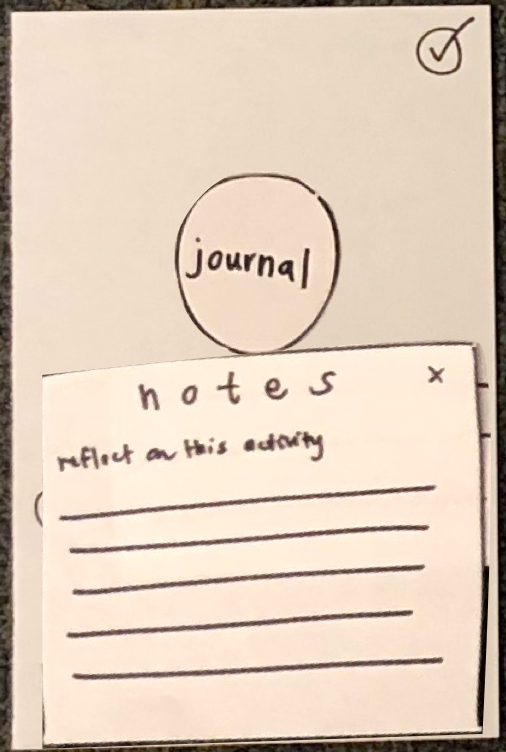 journal
notes x
reflect on this activity